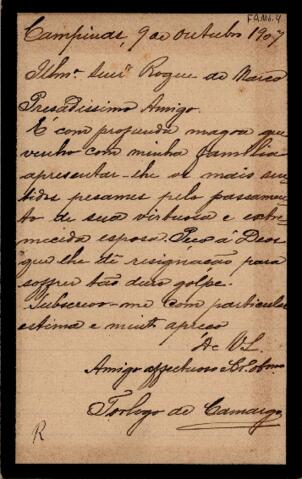 FAMb.4
Campinas, 9 de Outubro 1907
Illmº Snrº Roque de Marco
Presadissimo Amigo.
É com profunda magoa que
venho com minha familia
apresentar-lhe os mais sen-
tidos pesames pelo passamen-
to de sua virtuosa e estre-
mecida esposa. Peço á Deos
que lhe dê resignação para
soffrer tão duro golpe.
Subscrevo-me com particular
estima e muito apreço
De V.S.
Amigo affectuoso e
de Camargo
R